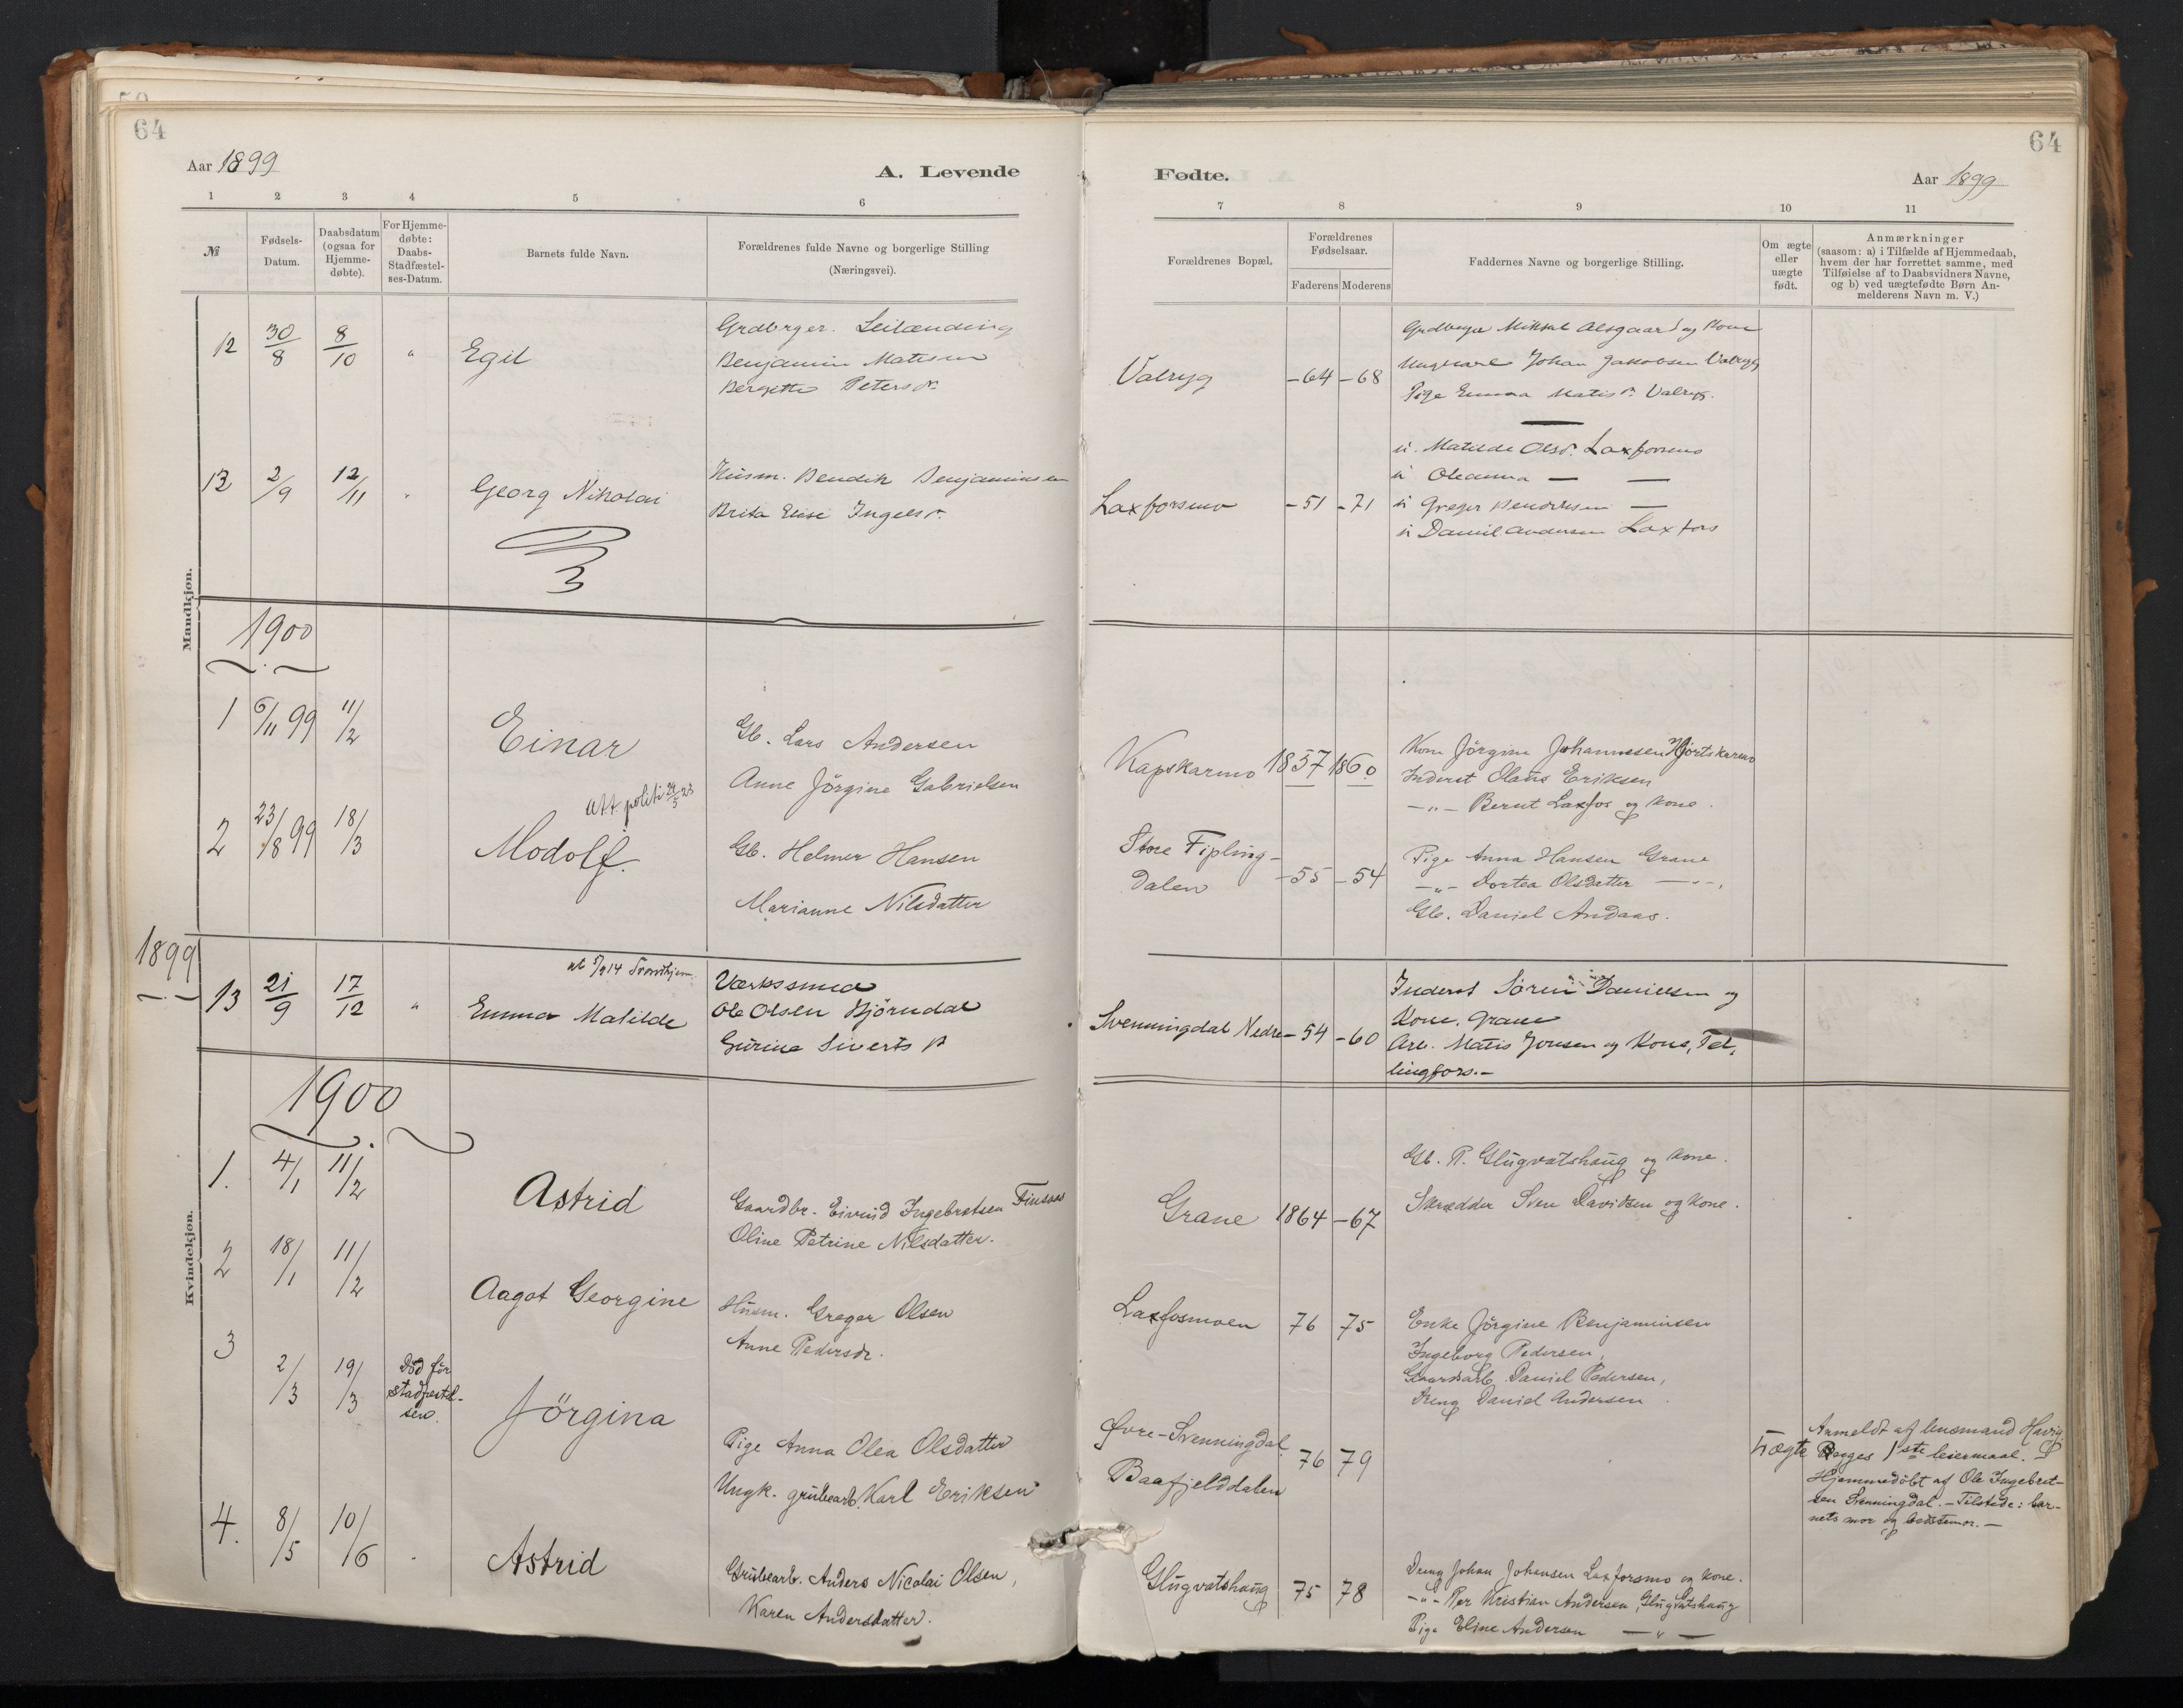 64
Aar 1899
A. Levende
1 2 3 4 5 6
№
Fødsels-Datum.
Daabsdatum (ogsaa for Hjemme-døbte).
For Hjemme-døbte: Daabs-Stadfæstel-ses-Datum.
Barnets fulde Navn.
Forældrenes fulde Navne og borgerlige Stilling
(Næringsvei).
Mandkjøn.
12 30/8 8/10 " Egil
Grdbrger. Leilænding
Benjamin Matisen
Bergitte Petersdr.
13 2/9 12/11 " Georg Nikolai
Husm. Bendik Benjaminsen
Brita Elise Ingelsdr.
1900
1 6/11 99 11/2 Einar
Gb. Lars Andersen
Anne Jörgine Gabrielsen
Att. politi 24/5 23
2 23/8 99 18/3 Modolf.
Gb. Helmer Hansen
Marianne Nilsdatter
1899
Kvindekjøn.
13 21/9 17/12 " Emma Matilde
Værkssmed
Ole Olsen Björndal
Gurine Sivertsdr
1900
1. 4/1 11/2 Astrid
Gaardbr. Eivind Ingebretsen Finsaas
Oline Petrine Nilsdatter.
2 18/1 11/2 Aagot Georgine
Husm. Greger Olsen
Anne Pedersdr.
3 2/3 19/3 Död för stadfæstel-sen. Jörgina
Pige Anna Olea Olsdatter
Ungk. grubearb. Karl Eriksen
4. 8/5 10/6 Astrid
Grubearb. Anders Nicolai Olsen,
Karen Andersdatter.
64
Fødte.
Aar 1899
7 8 9 10 11
Forældrenes Bopæl.
Forældrenes Fødselsaar.
Faderens Moderens
Faddernes Navne og borgerlige Stilling.
Om ægte eller uægte født.
Anmærkninger
(saasom: a) i Tilfælde af Hjemmedaab,
hvem der har forrettet samme, med
Tilføielse af to Daabsvidners Navne,
og b) ved uægtefødte Børn An-
melderens Navn m. V.)
Valryg -64 -68
Grdbrger Mikkal Alsgaard og Kone
Ungkarl Johan Jakobsen Valryg
Pige Emma Matisdr. Valryg.
Laxforsmo -51 -71
Matilde Olsdr. Laxforsmo
Oleanna — —
Greger Bendiksen —
Daniel Andersen Laxfors
Kapskarmo 1857 1860
Kone Jörgine Johannessen Hjortskarmo
Inderst Olaus Eriksen
—"— Bernt Laxfos og kone.
Store Fipling-
dalen -55 -54
Pige Anna Hansen Grane
—"— Dortea Olsdatter —"—
Gb. Daniel Andaas.
Svenningdal Nedre -54 -60
Inderst Sören Danielsen og
Kone, Grane
Arb. Matis Jonsen og Kone, Tel-
lingfors.-
Grane 1864 -67
Gb. P. Glugvatshaug og kone.
Skrædder Sven Davidsen og kone.
Laxfosmoen 76 75
Enke Jörgine Benjaminsen
Ingeborg Pedersen,
Gaardarb. Daniel Pedersen,
Dreng Daniel Andersen.
Øvre-Svenningdal.
Baafjelddalen 76 79
Uægte
Anmeldt af lensmand Havig.
Beges 1ste leiermaal.
Hjemmedöbt af Ole Ingebret-
sen Svenningdal. - Tilstede: bar-
nets mor og bedstemor. -
Glugvatshaug 75 78
Dreng Johan Johansen Laxforsmo og kone.
—"— Per Kristian Andersen, Glugvatshaug
Pige Eline Andersen —"—